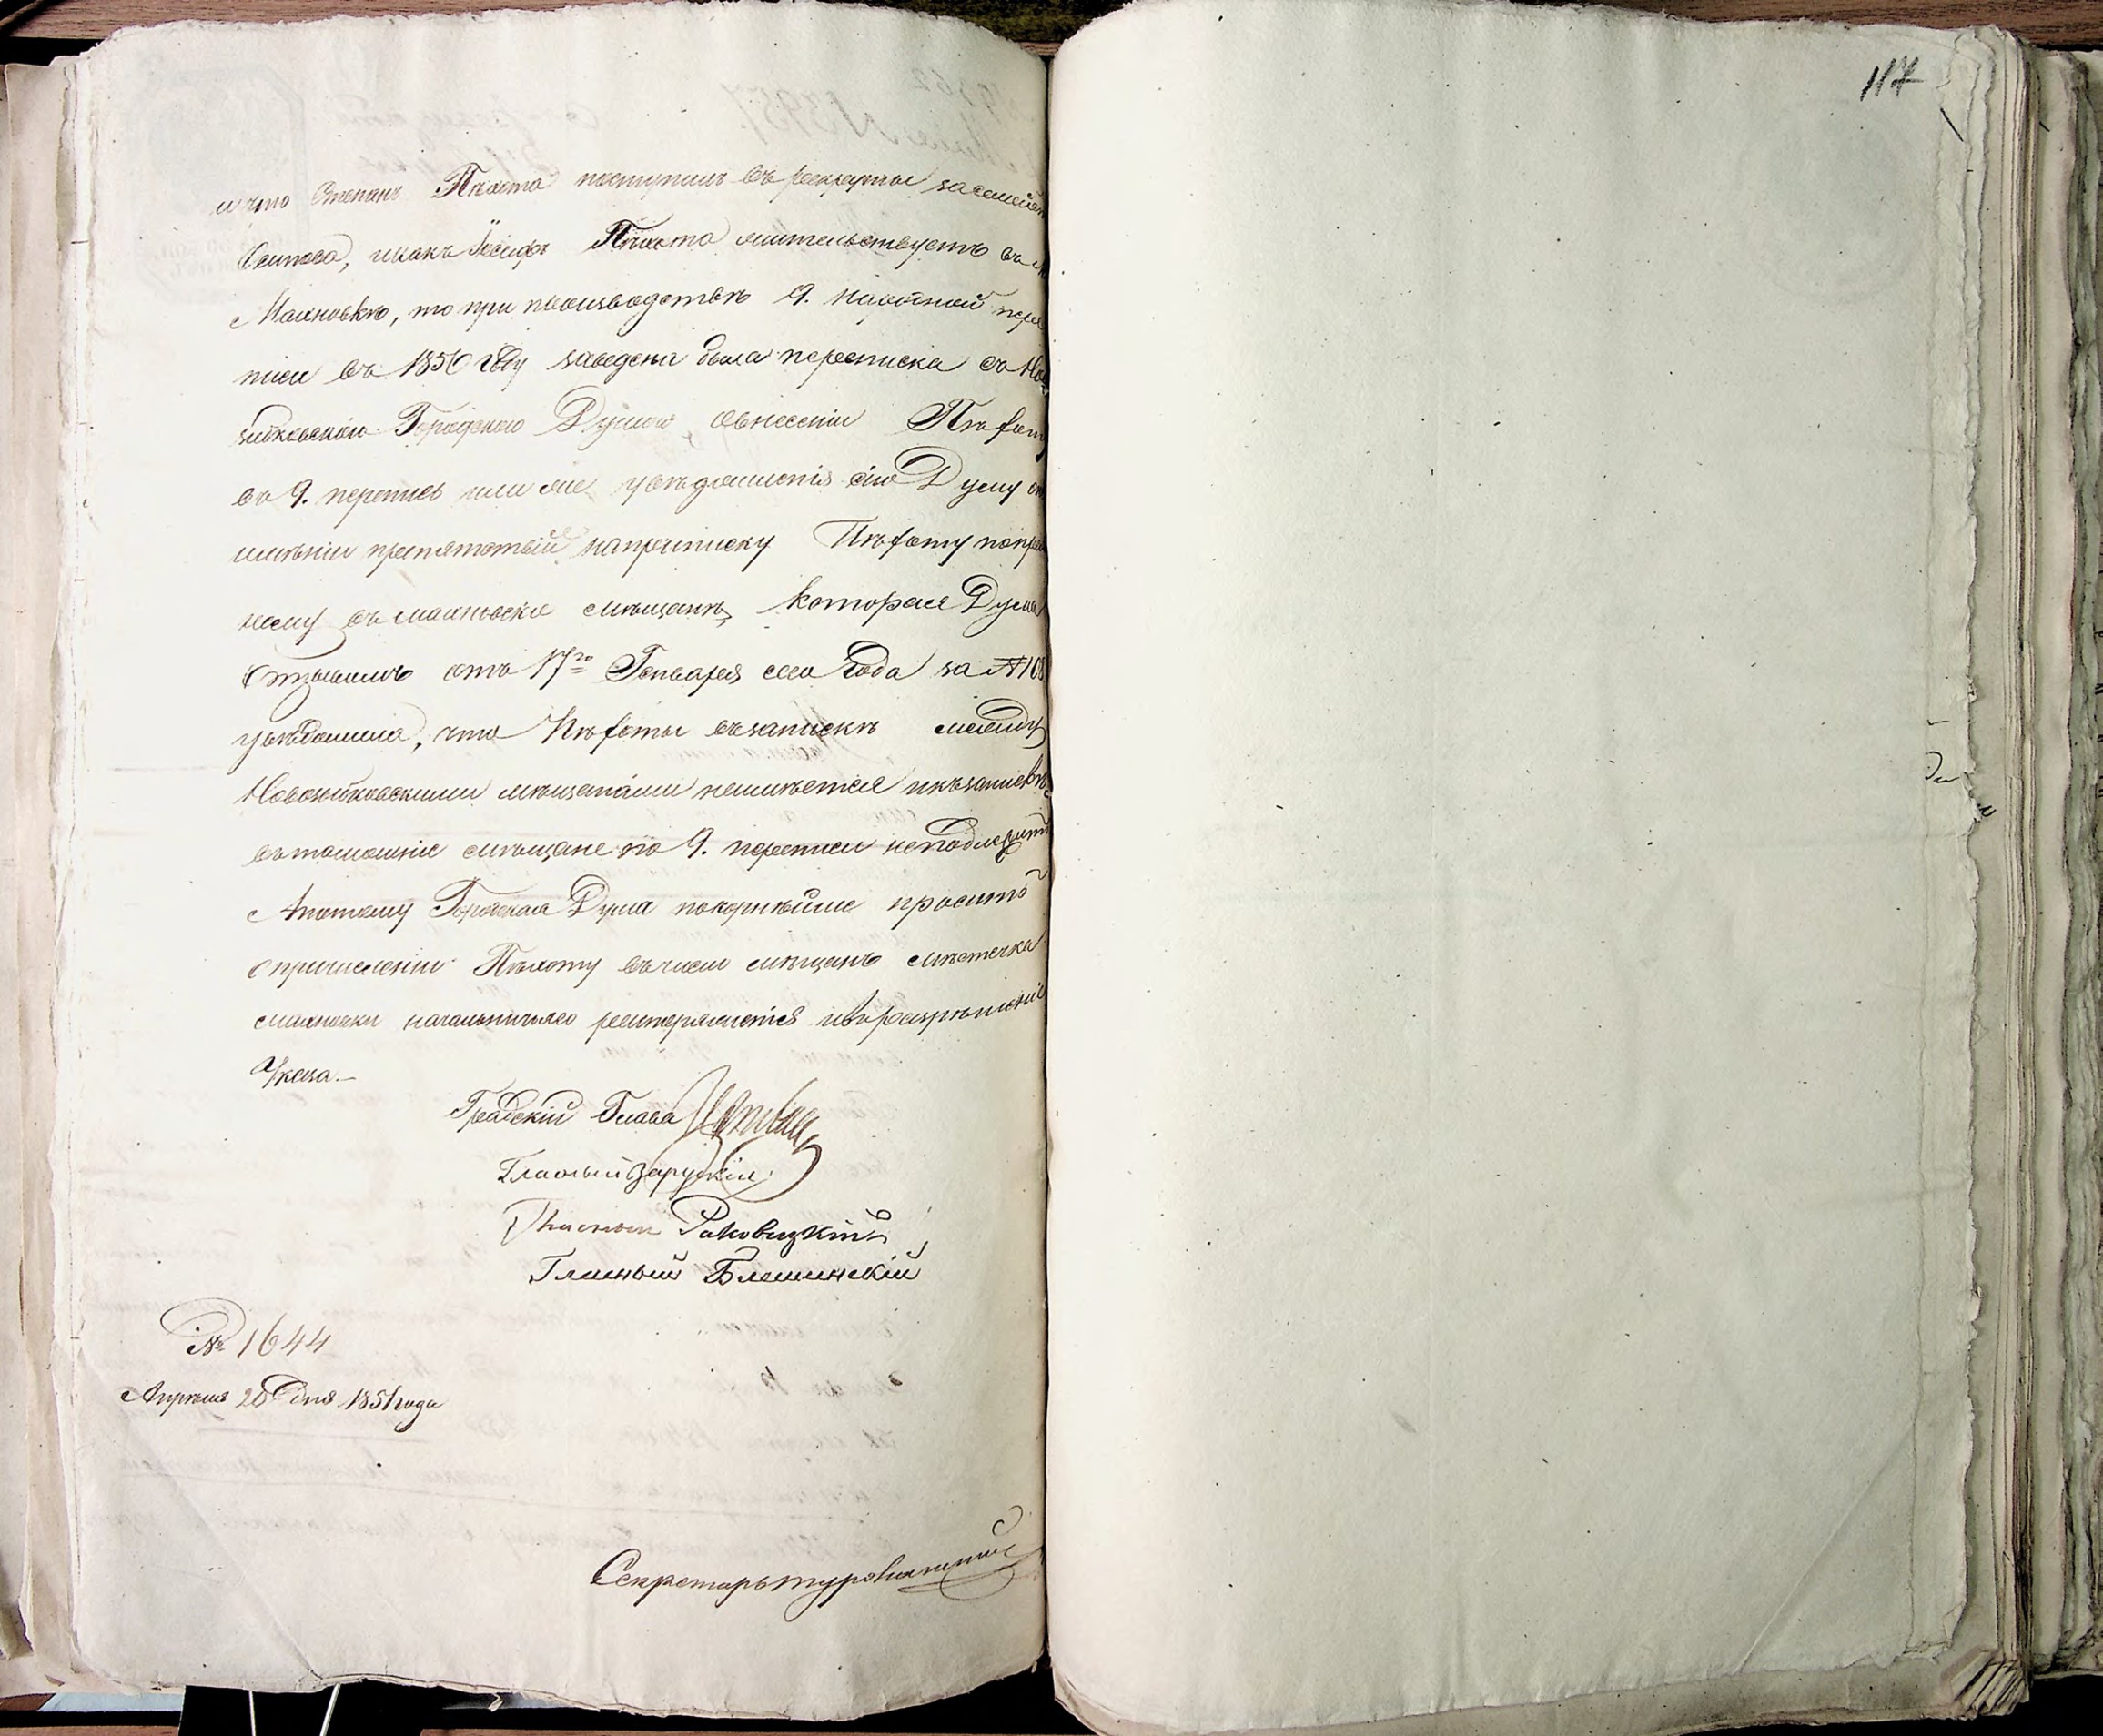 117
и что Степанъ Пѣхота поступилъ въ рекруты за семейст
Осипова, и какъ Іосифъ Пѣхота жительствуетъ въ м
Махновкѣ, то при производствѣ 9. народной пере
писи въ 1850 году заведена была переписка съ Но
зыбковскою Городскою Думою, о внесеніи Пѣхоту
въ 9. перепись или же увѣдомленія сію Думу о не
имѣніи препятствій на приписку Пѣхоту по преж
нему въ махновскіе мѣщане, которая Дума
Отзывомъ отъ 17го Генваря сего года за № 108
увѣдомила, что Пѣхоты въ запискѣ между
Новозыбковскими мѣщанами неимѣется и къ запискѣ
въ тамошніе мѣщане по 9. переписи неподлежитъ
А потому Городская Дума покорнѣйше проситъ
о причисленіи Пѣхоту въ число мѣщанъ мѣстечка
Махновки начальничьяго разрѣшеніе
Указа.—
Градскій Глава
Гласный Заруцкій
Гласный Раковецкій
Гласный Блешинскій
№ 1644
Апрѣля 26 дня 1851 года
Секретарь